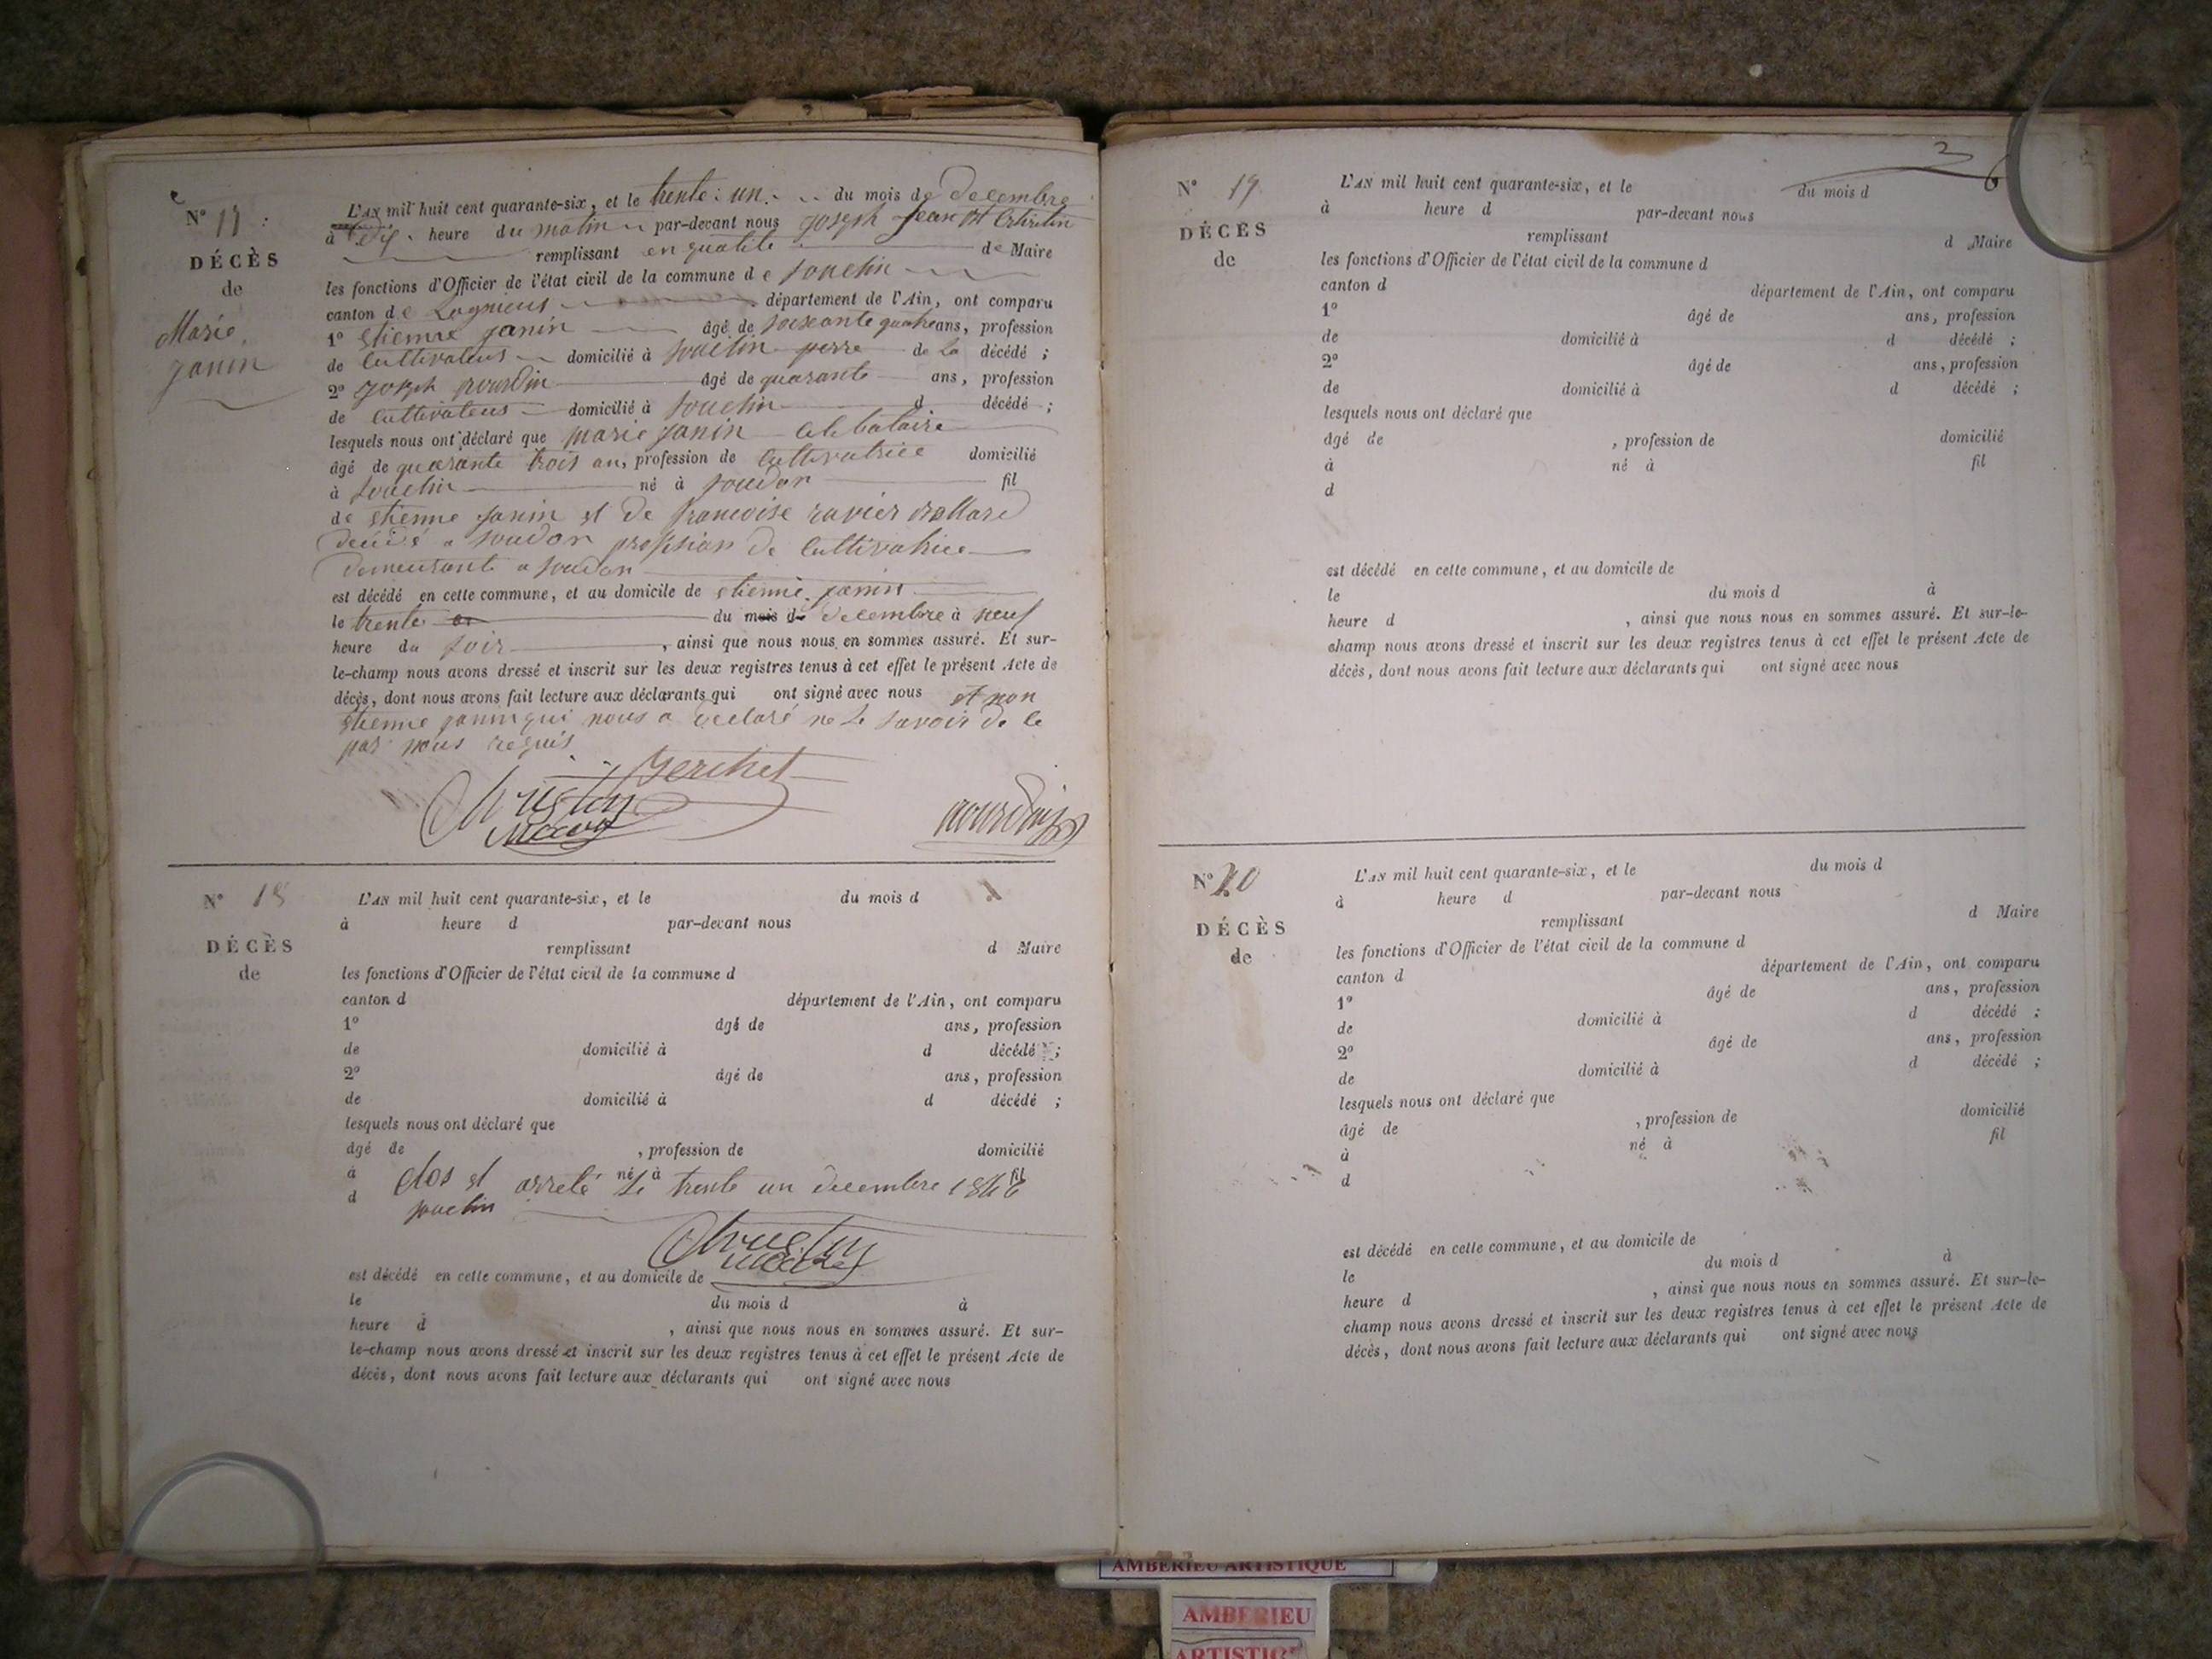 N° 17
DÉCÈS
de
Marie
janin
L'AN mil huit cent quarante-six, et le trente un du mois de decembre
à dix heure du matin par-devant nous joseph jean
remplissant en qualité de Maire
les fonctions d'Officier de l'état civil de la commune de souclin
canton de Lagnieus département de l'Ain, ont comparu
1° etienne janin âgé de soixante quatre ans, profession
de cultivateus domicilié à souclin perre de La décédé ;
2° joseph pourdin âgé de quarante ans, profession
de cultivateus domicilié à souclin d décédé ;
lesquels nous ont déclaré que marie janin celebataire
âgé de quarante trois an, profession de cultivatrice domicilié
à souclin né à soudon fil
de etienne janin et de francoise ravier mallare
decidé a soudon profession de cultivatrice
demeurante a soudon
est décédé en cette commune, et au domicile de etienne janin
le trente du mois de decembre à neuf
heure du soir , ainsi que nous nous en sommes assuré. Et sur-
le-champ nous avons dressé et inscrit sur les deux registres tenus à cet effet le présent Acte de
décès, dont nous avons fait lecture aux déclarants qui ont signé avec nous et non
etienne janin qui nous a declaré ne Le savoir de ce
par nous requis
Berchet
Christin
Maire
pourdin
N° 18
DÉCÈS
de
L'AN mil huit cent quarante-six, et le du mois d
à heure d par-devant nous
remplissant d Maire
les fonctions d'Officier de l'état civil de la commune d
canton d département de l'Ain, ont comparu
1° âgé de ans, profession
de domicilié à d décédé ;
2° âgé de ans, profession
de domicilié à d décédé ;
lesquels nous ont déclaré que
âgé de , profession de domicilié
à né à fil
d clos et arreté Le trente un decembre 1846
souclin
Christin
maire
est décédé en cette commune, et au domicile de
le du mois d à
heure d , ainsi que nous nous en sommes assuré. Et sur-
le-champ nous avons dressé et inscrit sur les deux registres tenus à cet effet le présent Acte de
décès, dont nous avons fait lecture aux déclarants qui ont signé avec nous
N° 19
DÉCÈS
de
L'AN mil huit cent quarante-six, et le du mois d
à heure d par-devant nous
remplissant d Maire
les fonctions d'Officier de l'état civil de la commune d
canton d département de l'Ain, ont comparu
1° âgé de ans, profession
de domicilié à d décédé ;
2° âgé de ans, profession
de domicilié à d décédé ;
lesquels nous ont déclaré que
âgé de , profession de domicilié
à né à fil
d
est décédé en cette commune, et au domicile de
le du mois d à
heure d , ainsi que nous nous en sommes assuré. Et sur-le-
champ nous avons dressé et inscrit sur les deux registres tenus à cet effet le présent Acte de
décès, dont nous avons fait lecture aux déclarants qui ont signé avec nous
N° 20
DÉCÈS
de
L'AN mil huit cent quarante-six, et le du mois d
à heure d par-devant nous
remplissant d Maire
les fonctions d'Officier de l'état civil de la commune d
canton d département de l'Ain, ont comparu
1° âgé de ans, profession
de domicilié à d décédé ;
2° âgé de ans, profession
de domicilié à d décédé ;
lesquels nous ont déclaré que
âgé de , profession de domicilié
à né à fil
d
est décédé en cette commune, et au domicile de
le du mois d à
heure d , ainsi que nous nous en sommes assuré. Et sur-le-
champ nous avons dressé et inscrit sur les deux registres tenus à cet effet le présent Acte de
décès, dont nous avons fait lecture aux déclarants qui ont signé avec nous
AMBERIEU ARTISTIQUE
AMBERIEU